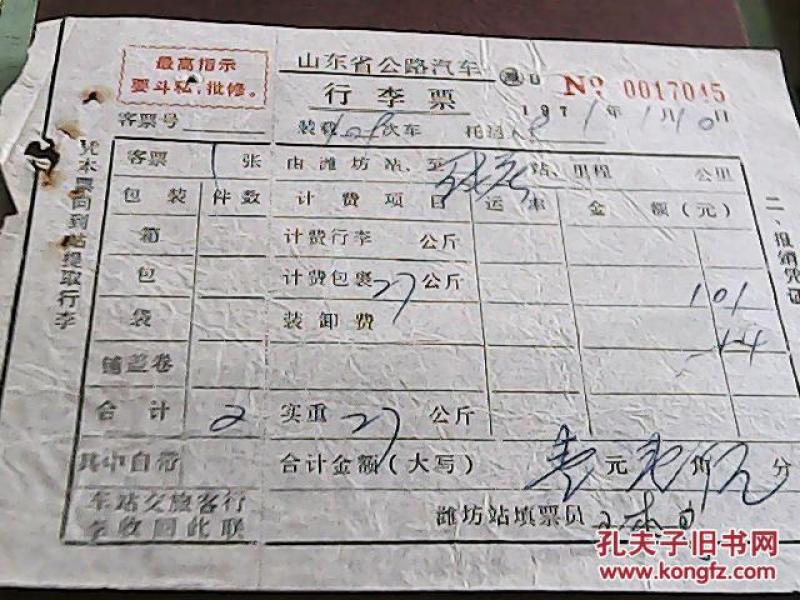 最高指示
要斗私，批修。
山东省公路汽车
行李票
No 0017045
1971年1月10日
客票号
装 次车 托运人
凭本票向到站提取行李
客票 1 张 由潍坊站、至 站、里程 公里
包装 件数 计费项目 运率 金额（元）
箱 计费行李 公斤
包 计费包裹 27 公斤 101
袋 装卸费
铺盖卷
合计 2 实重 27 公斤
其中自带 合计金额（大写） 壹元 角 分
车站交旅客行
李收回此联
潍坊站填票员
二、报销凭证
孔夫子旧书网
www.kongfz.com